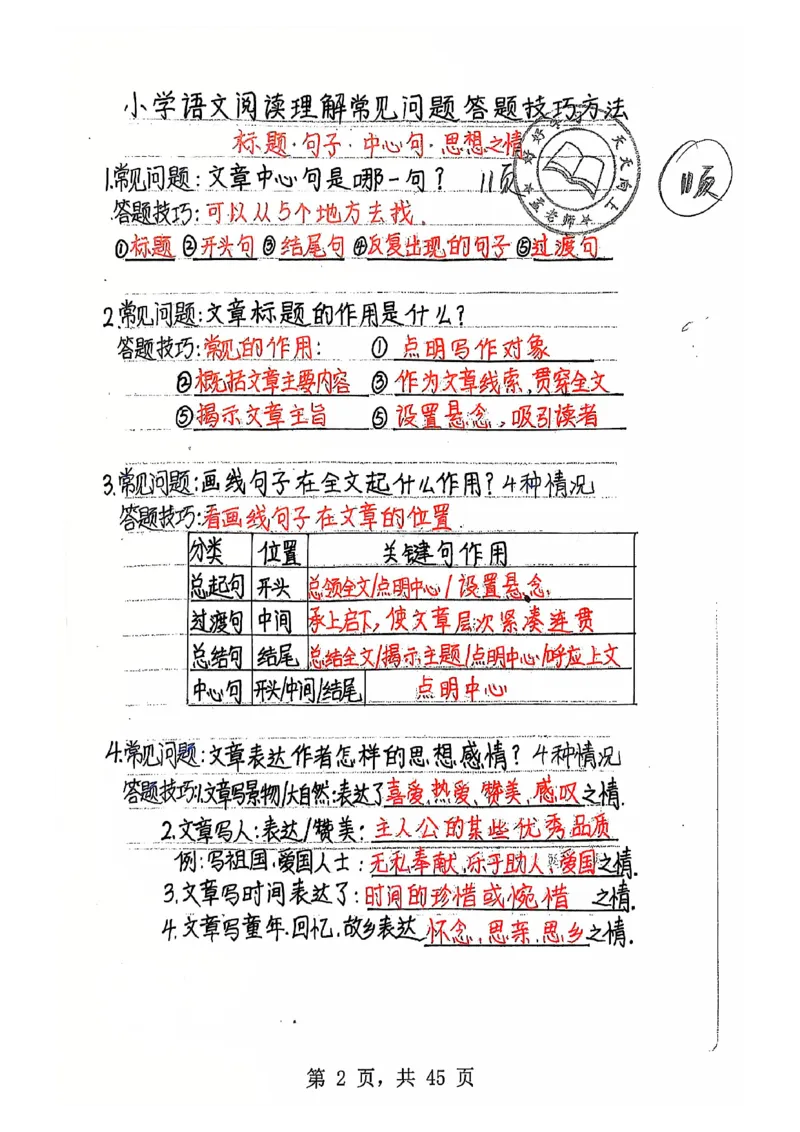 小学语文阅读理解常见问题答题技巧方法
标题·句子·中心句·思想之情
好好学习 天天向上
孟老师
11页
1.常见问题:文章中心句是哪一句? 11页
答题技巧:可以从5个地方去找.
①标题 ②开头句 ③结尾句 ④反复出现的句子 ⑤过渡句
2.常见问题:文章标题的作用是什么?
答题技巧:常见的作用: ① 点明写作对象
②概括文章主要内容 ③ 作为文章线索,贯穿全文
⑤揭示文章主旨 ⑤ 设置悬念,吸引读者
3.常见问题:画线句子在全文起什么作用? 4种情况
答题技巧:看画线句子在文章的位置
分类 位置 关键句作用
总起句 开头 总领全文/点明中心/设置悬念,
过渡句 中间 承上启下,使文章层次紧凑连贯
总结句 结尾 总结全文/揭示主题/点明中心/呼应上文
中心句 开头/中间/结尾 点明中心
4.常见问题:文章表达作者怎样的思想感情? 4种情况
答题技巧:1.文章写景物/大自然:表达了喜爱、热爱、赞美、感叹之情.
2.文章写人:表达/赞美:主人公的某些优秀品质
例:写祖国,爱国人士:无私奉献,乐于助人,爱国之情.
3.文章写时间表达了:时间的珍惜或惋惜 之情.
4.文章写童年.回忆.故乡表达 怀念,思亲,思乡之情.
第 2 页,共 45 页